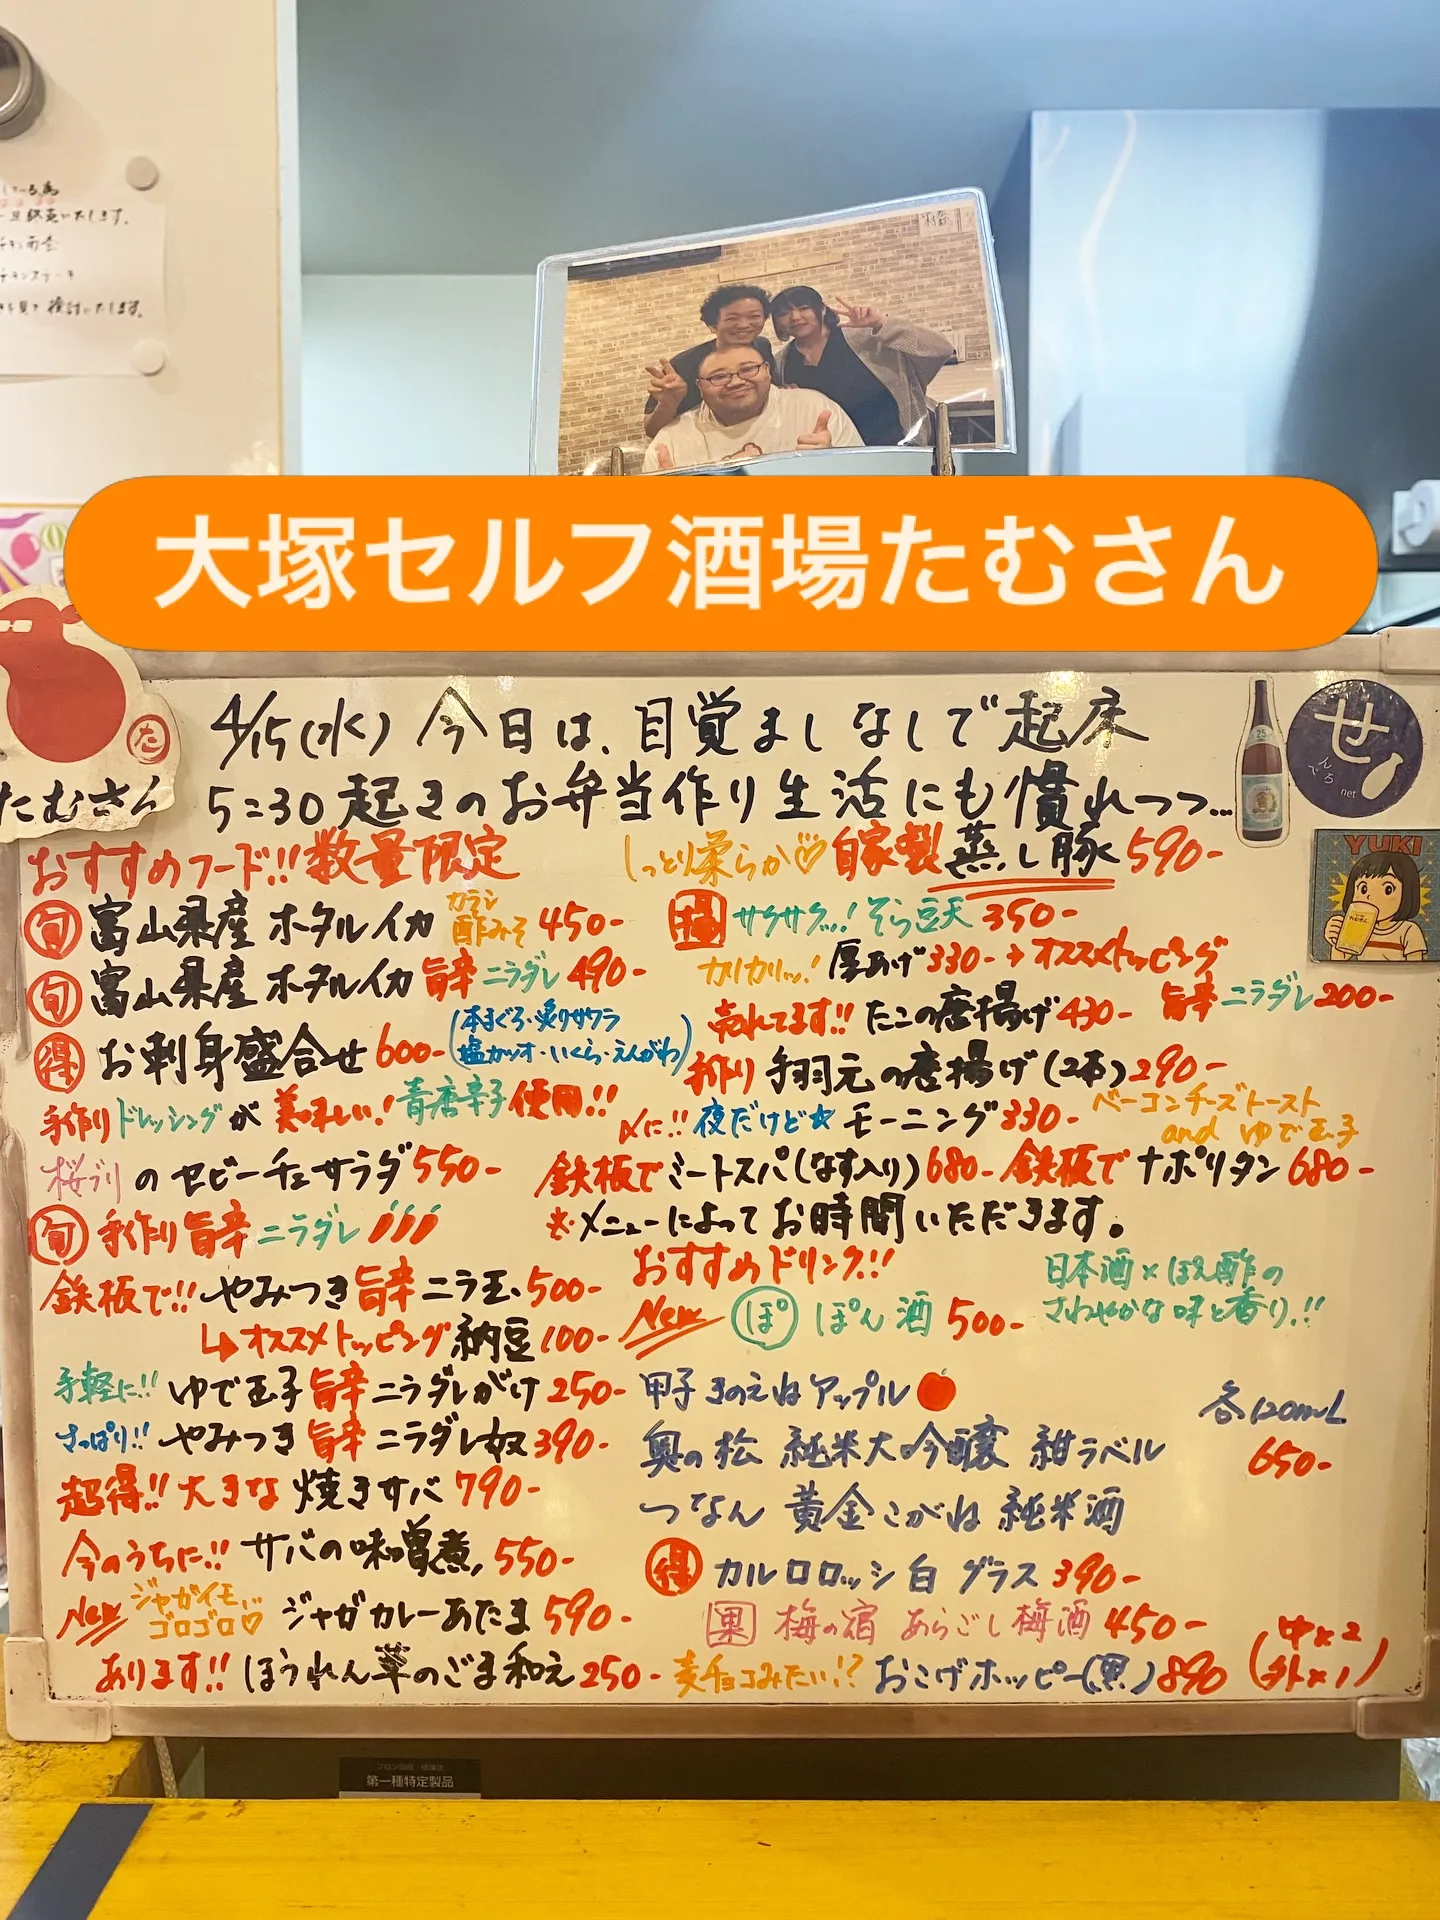 一旦
検討いたします。
大塚セルフ酒場たむさん
たむさん
た
せ
んべろ
net
YUKI
4/15(水) 今日は、目覚ましなしで起床
5:30起きのお弁当作り生活にも慣れつつ…
おすすめフード!! 数量限定
旬 富山県産 ホタルイカ カラシ酢みそ 450-
旬 富山県産 ホタルイカ 旨辛ニラダレ 490-
得 お刺身盛合せ 600- (本まぐろ・炙りサワラ
塩カツオ・いくら・えんがわ)
手作りドレッシングが美味しい! 青唐辛子使用!!
桜ブリのセビーチェサラダ 550-
旬 手作り旨辛ニラダレ
鉄板で!! やみつき旨辛ニラ玉 500-
↳オススメトッピング納豆 100-
手軽に!! ゆで玉子旨辛ニラダレがけ 250-
さっぱり!! やみつき旨辛ニラダレ奴 390-
超得!! 大きな焼きサバ 790-
今のうちに!! サバの味噌煮 550-
New ジャガイモ…ゴロゴロ♡ ジャガカレーあたま 590-
あります!! ほうれん草のごま和え 250-
しっとり柔らか♡ 自家製蒸し豚 590-
サクサクッ! そら豆天 350-
カリカリッ! 厚あげ 330- → オススメトッピング
旨辛ニラダレ 200-
売れてます!! たこの唐揚げ 430-
手作り 手羽元の唐揚げ(2本) 290-
〆に!! 夜だけど☆ モーニング 330- ベーコンチーズトースト
and ゆで玉子
鉄板でミートスパ(なす入り) 680- 鉄板でナポリタン 680-
※メニューによってお時間いただきます。
おすすめドリンク!!
New ぽ ぽん酒 500- 日本酒×ぽん酢の
さわやかな味と香り!!
甲子 きのえねアップル
奥の松 純米大吟醸 紺ラベル
つなん 黄金こがね 純米酒
各120mL
650-
得 カルロロッシ 白 グラス 390-
果 梅の宿 あらごし梅酒 450-
麦チョコみたい!? おこげホッピー(黒) 890 (中×2
外×1)
第一種特定製品